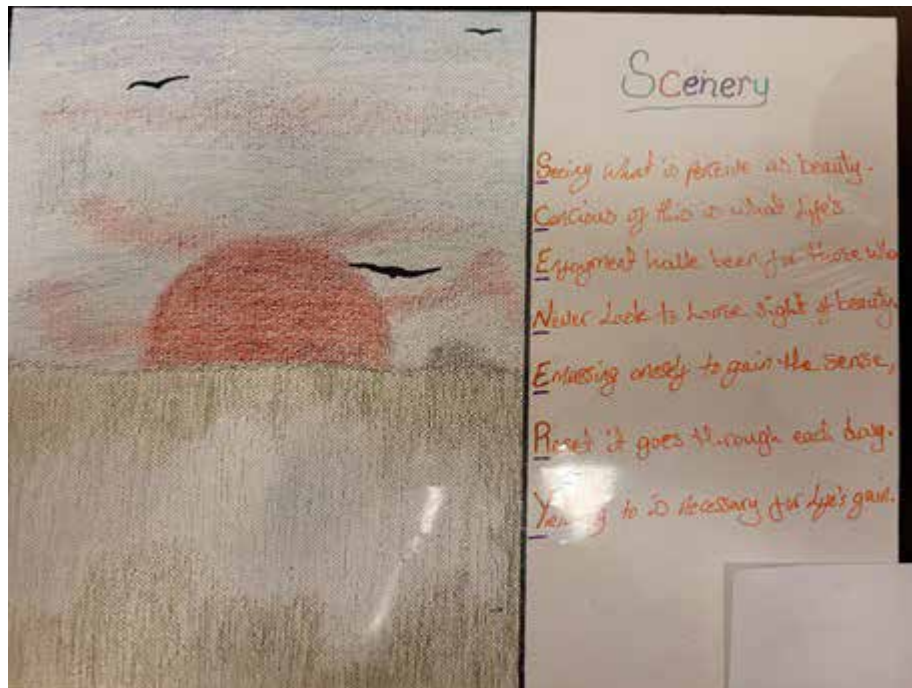 Scenery
Seeing what is perceive as beauty.
Concious of this is what life's
Enjoyment have been for those who
Never Look to loose sight of beauty
onesely to gain the sense,
Reset it goes through each day.
to is necessary for life's gain.